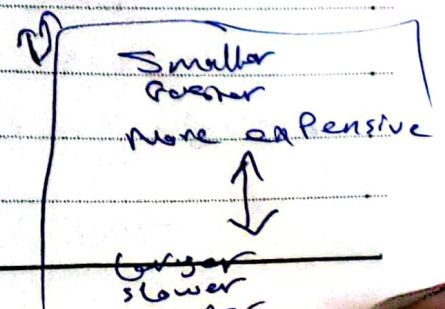 Smaller
Faster
More expensive
Larger
slower